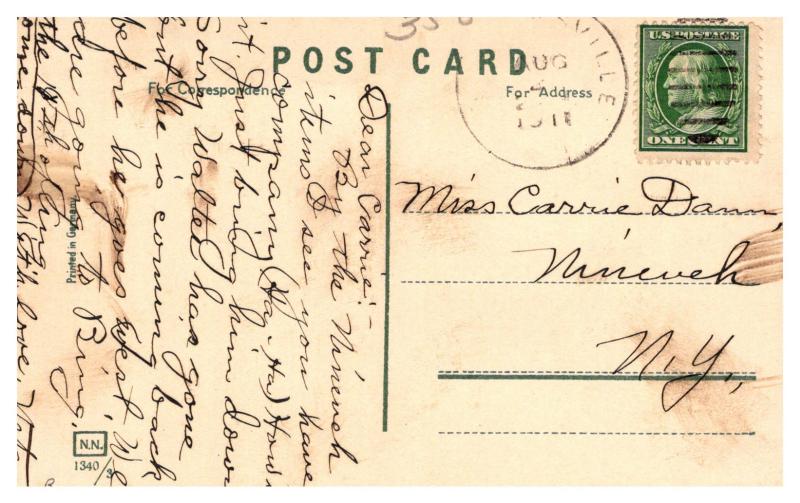 POST CARD
For Correspondence
For Address
AUG
VILLE
1911
U.S. POSTAGE
ONE CENT
Miss Carrie Dann,
Nineveh
N.Y.,
Dear Carrie:-
By the Nineveh
items I see you have
company (Ha-Ha) How's
it. Just bring him down
Sorry Walter has gone
but he is coming back
before he goes West We
are going to Bing,
the 18th of Aug.
With love,
Printed in Germany
N.N.
1340